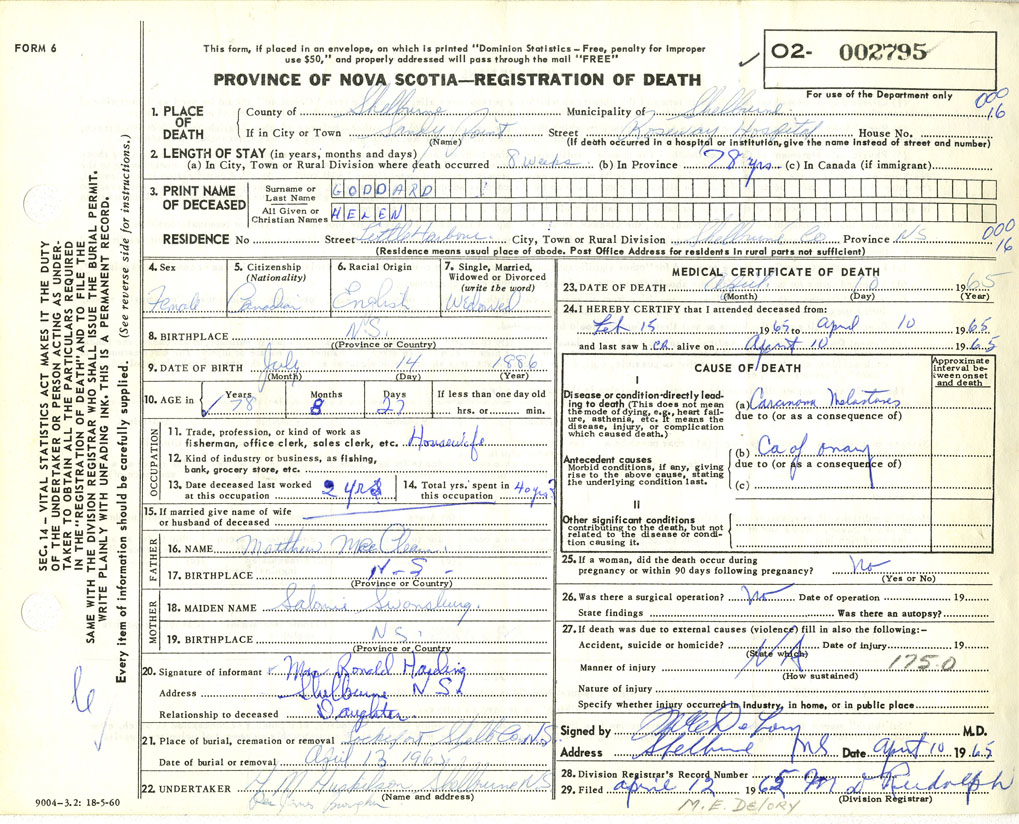 FORM 6
This form, if placed in an envelope, on which is printed "Dominion Statistics – Free, penalty for improper
use $50," and properly addressed will pass through the mail "FREE"
PROVINCE OF NOVA SCOTIA—REGISTRATION OF DEATH
✓ 02- 002795
For use of the Department only
000
16
1. PLACE OF DEATH
County of Shelburne Municipality of Shelburne
If in City or Town Sandy Point Street Roseway Hospital House No.
(Name) (If death occurred in a hospital or institution, give the name instead of street and number)
2. LENGTH OF STAY (in years, months and days)
(a) In City, Town or Rural Division where death occurred 8 weeks (b) In Province 78 yrs (c) In Canada (if immigrant)
3. PRINT NAME OF DECEASED
Surname or Last Name GODDARD
All Given or Christian Names HELEN
RESIDENCE No Street Little Harbour City, Town or Rural Division Shelburne Co Province NS
000
16
(Residence means usual place of abode. Post Office Address for residents in rural parts not sufficient)
4. Sex
Female
5. Citizenship
(Nationality)
Canadian
6. Racial Origin
English
7. Single, Married,
Widowed or Divorced
(write the word)
Widowed
8. BIRTHPLACE N.S.
(Province or Country)
9. DATE OF BIRTH July 14 1886
(Month) (Day) (Year)
10. AGE in Years Months Days If less than one day old
✓ 78 8 27 hrs. or min.
OCCUPATION
11. Trade, profession, or kind of work as
fisherman, office clerk, sales clerk, etc. Housewife
12. Kind of industry or business, as fishing,
bank, grocery store, etc.
13. Date deceased last worked
at this occupation 2 yrs
14. Total yrs. spent in
this occupation 40 yrs?
15. If married give name of wife
or husband of deceased
FATHER
16. NAME Matthew
17. BIRTHPLACE N-S-
(Province or Country)
MOTHER
18. MAIDEN NAME Swansburg
19. BIRTHPLACE NS.
(Province or Country)
20. Signature of informant Mrs Ronald Harding
Address Shelburne NS
Relationship to deceased Daughter
21. Place of burial, cremation or removal Lockeport Shelb Co N.S.
Date of burial or removal April 13 1965
22. UNDERTAKER Shelburne NS
(Name and address)
9004-3.2: 18-5-60
MEDICAL CERTIFICATE OF DEATH
23. DATE OF DEATH April 10 1965
(Month) (Day) (Year)
24. I HEREBY CERTIFY that I attended deceased from:
Feb 15 1965 to April 10 1965
and last saw her alive on April 10 1965
CAUSE OF DEATH
Approximate
interval be-
tween onset
and death
I
Disease or condition directly lead-
ing to death (This does not mean
the mode of dying, e.g., heart fail-
ure, asthenia, etc. It means the
disease, injury, or complication
which caused death.)
(a) Carcinoma
due to (or as a consequence of)
Antecedent causes
Morbid conditions, if any, giving
rise to the above cause, stating
the underlying condition last.
(b) Ca of ovary
due to (or as a consequence of)
(c)
II
Other significant conditions
contributing to the death, but not
related to the disease or condi-
tion causing it.
25. If a woman, did the death occur during
pregnancy or within 90 days following pregnancy? No
(Yes or No)
26. Was there a surgical operation? No Date of operation 19
State findings Was there an autopsy?
27. If death was due to external causes (violence) fill in also the following:–
Accident, suicide or homicide? Date of injury 19
(State which)
NA
1750
Manner of injury
(How sustained)
Nature of injury
Specify whether injury occurred in industry, in home, or in public place
Signed by M.D.
Address Shelburne NS Date April 10 1965
28. Division Registrar's Record Number
29. Filed April 12 1965 Rudolph
(Division Registrar)
M.E. DELORY
SEC. 14 – VITAL STATISTICS ACT MAKES IT THE DUTY
OF THE UNDERTAKER OR PERSON ACTING AS UNDER-
TAKER TO OBTAIN ALL THE PARTICULARS REQUIRED
IN THE "REGISTRATION OF DEATH" AND TO FILE THE
SAME WITH THE DIVISION REGISTRAR WHO SHALL ISSUE THE BURIAL PERMIT.
WRITE PLAINLY WITH UNFADING INK. THIS IS A PERMANENT RECORD.
Every item of information should be carefully supplied. (See reverse side for instructions.)